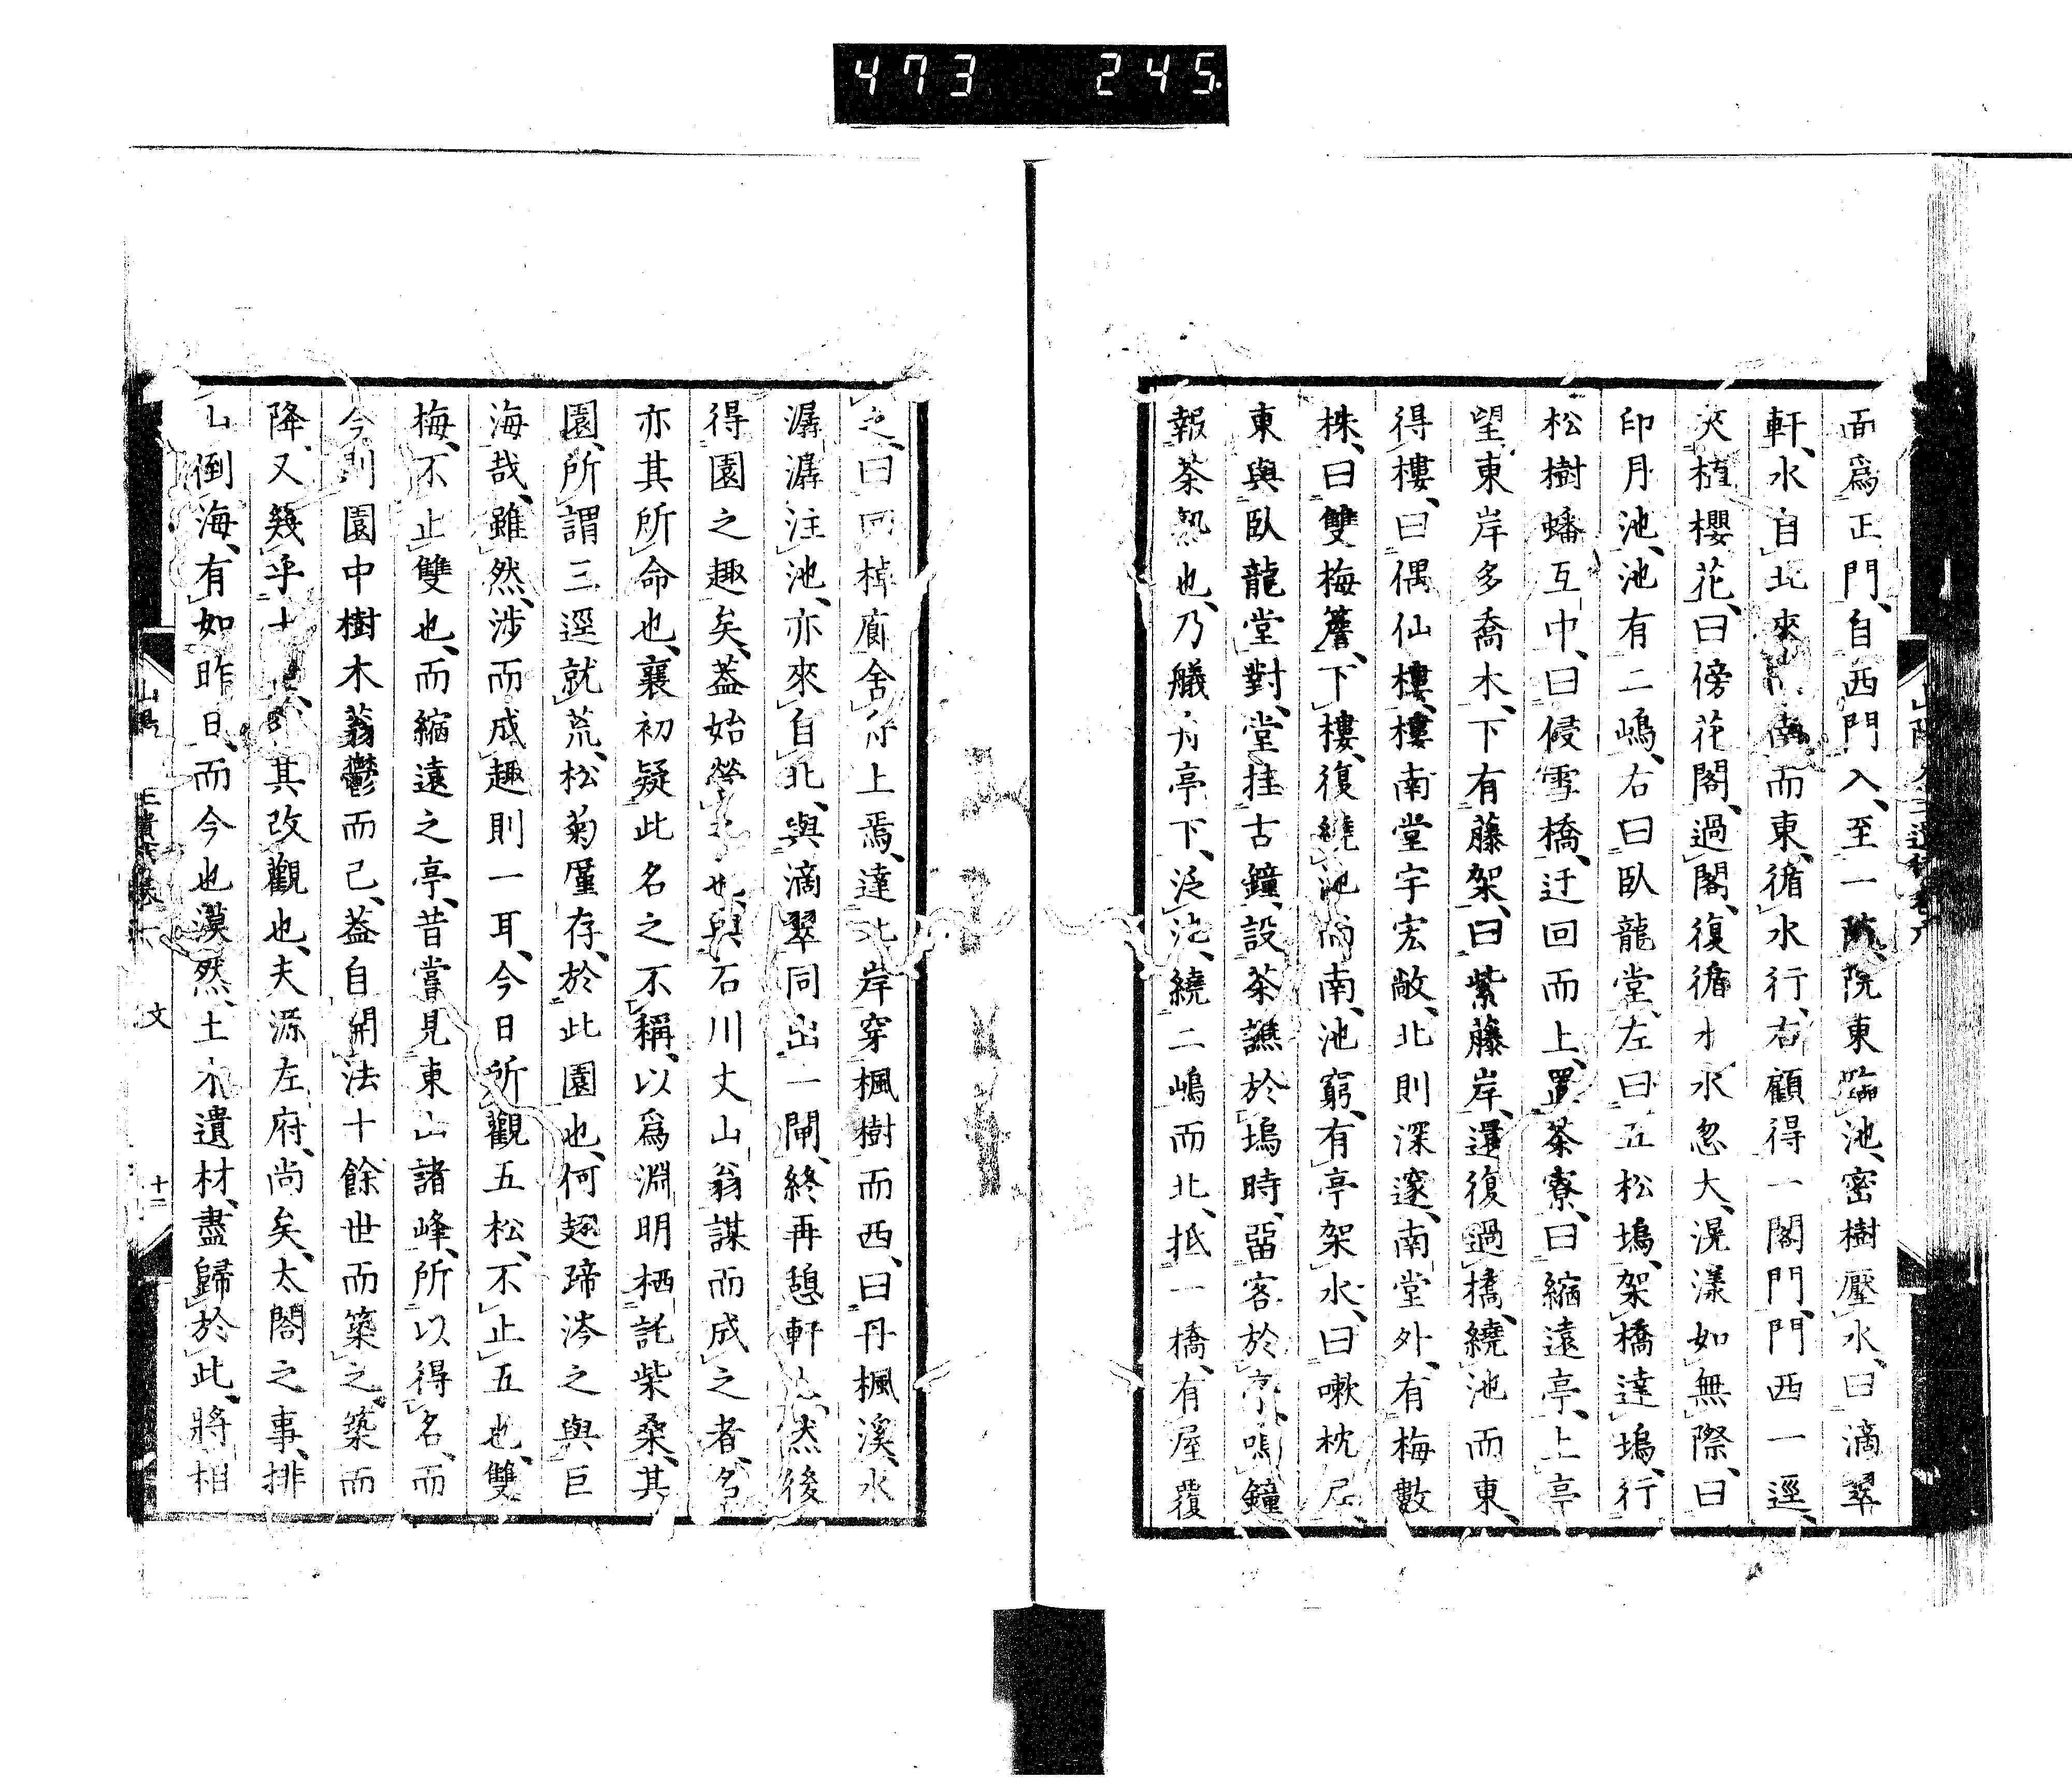 473 245
面爲正門、自西門入、至一院、院東臨池、密樹壓水、曰滴翠
軒、水自北來、南而東、循水行、右顧得一閣門、門西一逕、
夾植櫻花、曰傍花閣、過閣、復循水水忽大、滉漾如無際、曰
印月池、池有二嶋、右曰臥龍堂、左曰五松塢、架橋達塢、行
松樹蟠互中、曰侵雪橋、迂回而上、置茶寮、曰縮遠亭、上亭
望、東岸多喬木、下有藤架、曰紫藤岸、還復過橋、繞池而東、
得樓、曰偶仙樓、樓南堂宇宏敞、北則深邃、南堂外、有梅數
株、曰雙梅簷、下樓、復繞池而南、池窮、有亭架水、曰嗽枕居、
東與臥龍堂對、堂挂古鐘、設茶讌於塢時、畱客於亭、鳴鐘
報茶熟也、乃艤舟亭下、泛池、繞二嶋而北、抵一橋、有屋覆
之、曰回棹廊、舍舟上焉、達北岸穿楓樹而西、曰丹楓溪、水
潺潺注池、亦來自北、與滴翠同出一閘、終再憩軒上、然後
得園之趣矣、蓋始營也、與石川丈山翁謀而成之者、名
亦其所命也、襄初疑此名之不稱、以爲淵明栖託柴桑、其
園、所謂三逕就荒、松菊厪存、於此園也、何翅蹄涔之與巨
海哉、雖然、涉而成趣則一耳、今日所觀五松、不止五也、雙
梅、不止雙也、而縮遠之亭、昔嘗見東山諸峰、所以得名、而
今則園中樹木蓊鬱而已、蓋自開法十餘世而築之、築而
降、又幾乎十、其改觀也、夫源左府、尚矣、太閤之事、排
山倒海、有如昨日、而今也漠然、土木遺材、盡歸於此、將相
文 十二